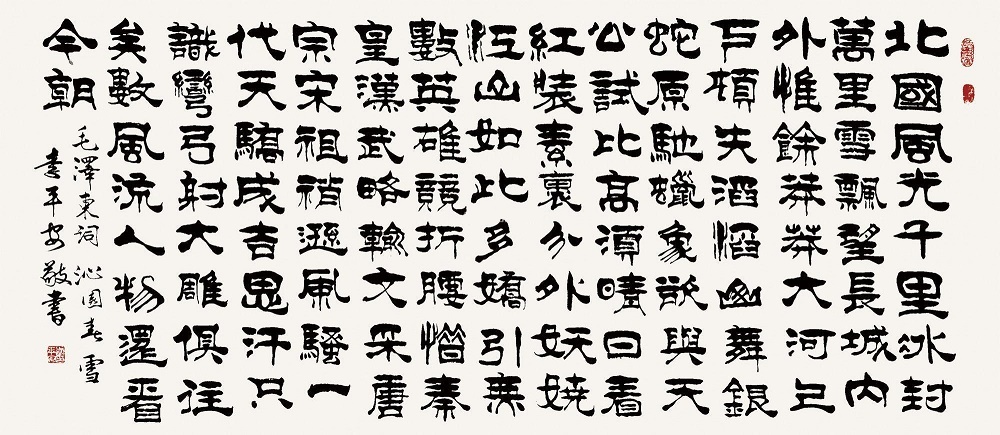 北國風光千里冰封
萬里雪飄望長城內
外惟餘莽莽大河上
下頓失滔滔山舞銀
蛇原馳蠟象欲與天
公試比高須晴日看
紅裝素裹分外妖嬈
江山如此多嬌引無
數英雄競折腰惜秦
皇漢武略輸文采唐
宗宋祖稍遜風騷一
代天驕成吉思汗只
識彎弓射大雕俱往
矣數風流人物還看
今朝
毛澤東詞 沁園春 雪
李平安 敬書